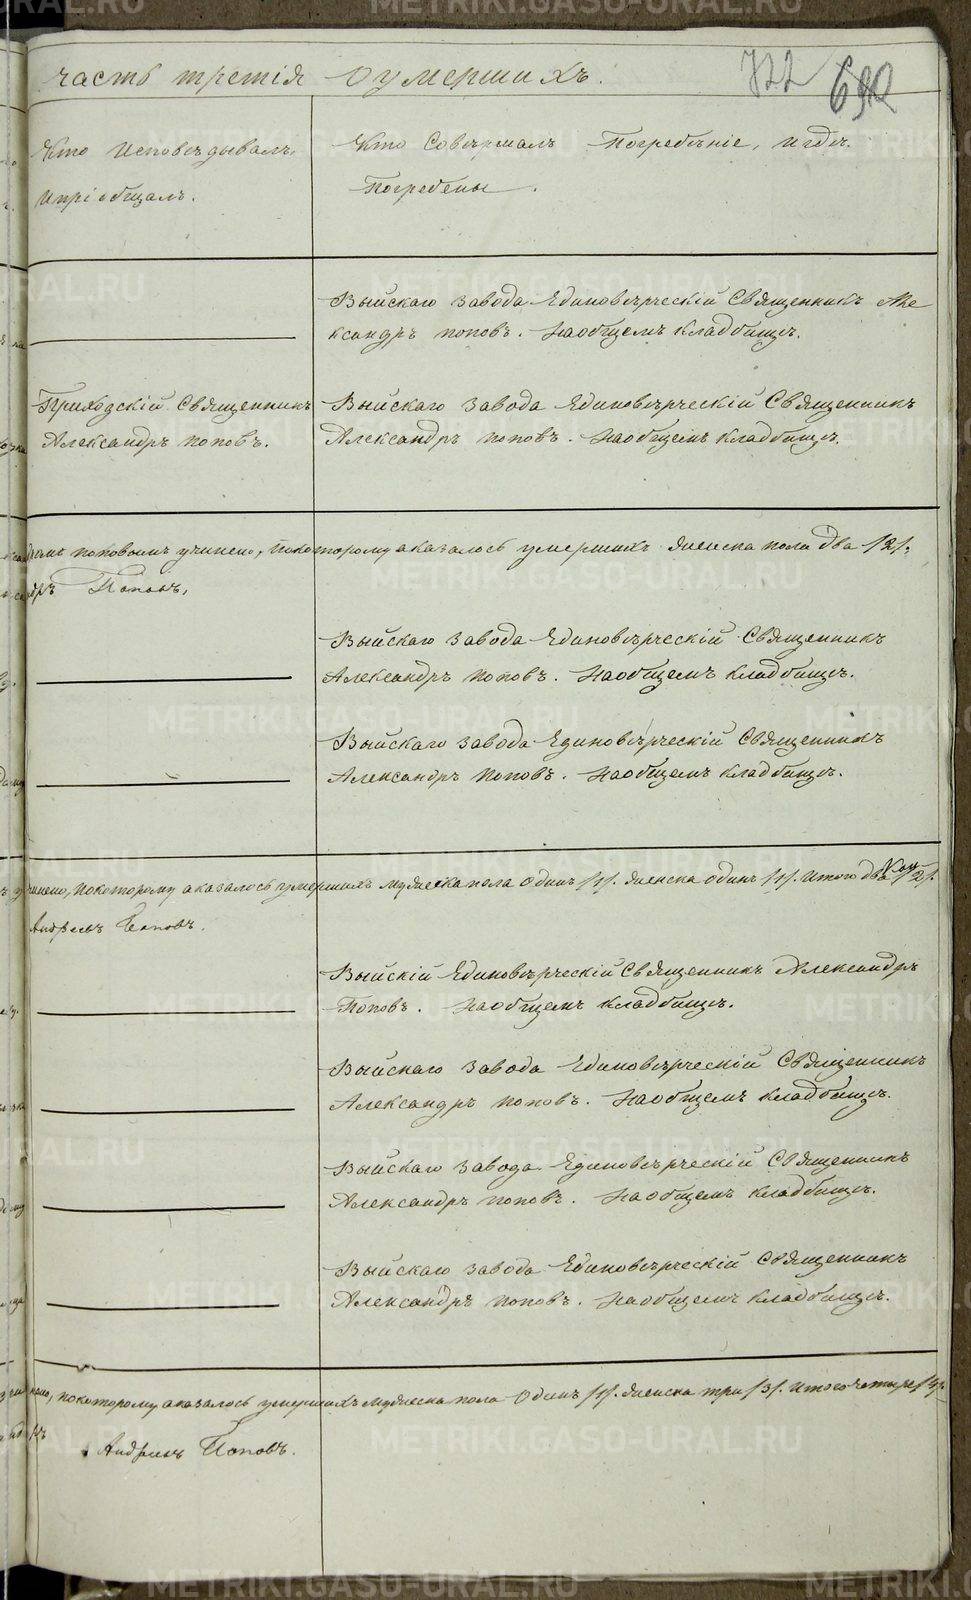 часть третія О умершихъ.
722 690
Кто Исповѣдывалъ,
и пріобщалъ.
Кто Совѣршалъ Погребѣніе, и гдѣ
Погребены.
Выйскаго завода Единовѣрческій Священникъ Але
ксандръ поповъ. На общемъ кладбищѣ.
Приходскій Священникъ
Александръ поповъ.
Выйскаго завода Единовѣрческій Священникъ
Александръ поповъ. На общемъ кладбищѣ.
поповымъ учинено, по которому аказалось умершихъ женска пола два /2/.
Поповъ,
Выйскаго завода Единовѣрческій Священникъ
Александръ поповъ. На общемъ кладбищѣ.
Выйскаго завода Единовѣрческій Священникъ
Александръ поповъ. На общемъ кладбищѣ.
по которому аказалось умершихъ мужеска пола одинъ /1/. женска одинъ /1/. Итого два /2/.
Поповъ.
Выйскій Единовѣрческій Священникъ Александръ
Поповъ. На общемъ кладбищѣ.
Выйскаго завода Единовѣрческій Священникъ
Александръ поповъ. На общемъ кладбищѣ.
Выйскаго завода Единовѣрческій Священникъ
Александръ поповъ. На общемъ кладбищѣ.
Выйскаго завода Единовѣрческій Священникъ
Александръ поповъ. На общемъ кладбищѣ.
по которому аказалось умершихъ мужеска пола Одинъ /1/. женска три /3/. Итого четыре /4/.
Поповъ.
METRIKI.GASO-URAL.RU